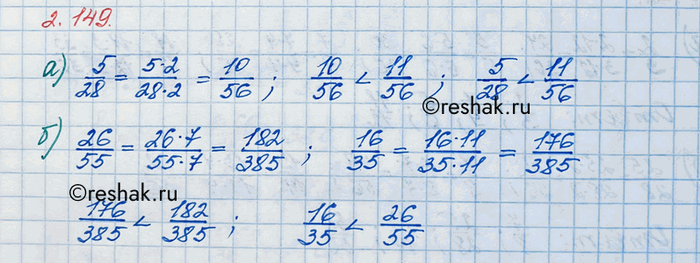 2.149.
а) 5/28 = 5·2/28·2 = 10/56 ; 10/56 < 11/56 ; 5/28 < 11/56
©reshak.ru
б) 26/55 = 26·7/55·7 = 182/385 ; 16/35 = 16·11/35·11 = 176/385
©reshak.ru
176/385 < 182/385 ; 16/35 < 26/55